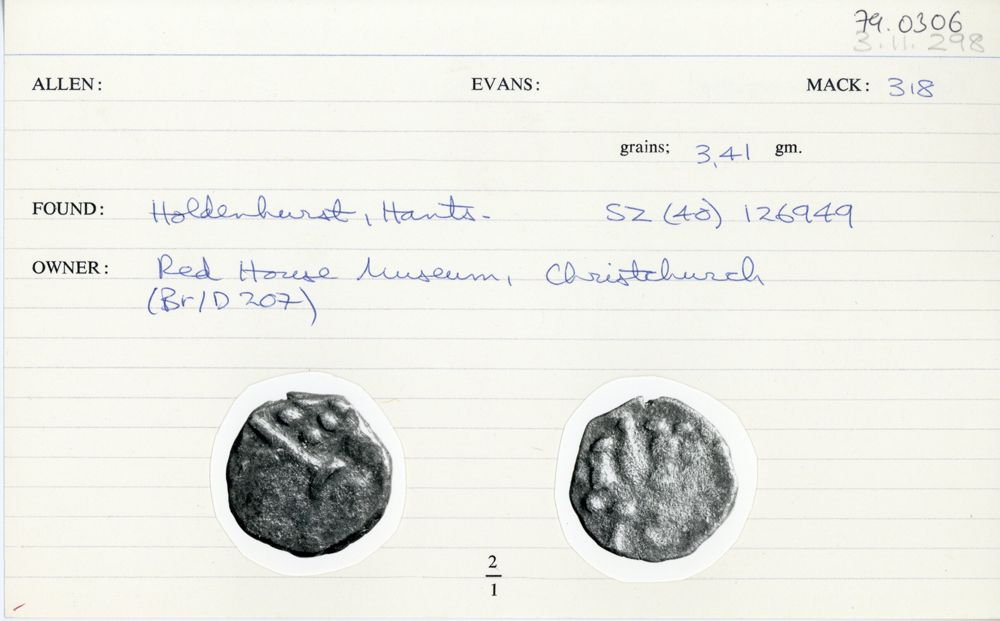 79.0306
3.11.298
ALLEN: EVANS: MACK: 318
grains; 3,41 gm.
FOUND: Holdenhurst, Hants. SZ (40) 126949
OWNER: Red House Museum, Christchurch
(Br/D 207)
2
1